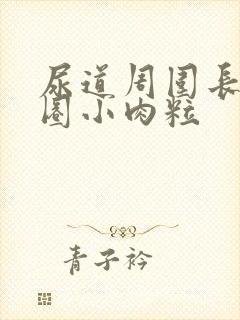 尿道周围長
圈小肉粒
青子衿